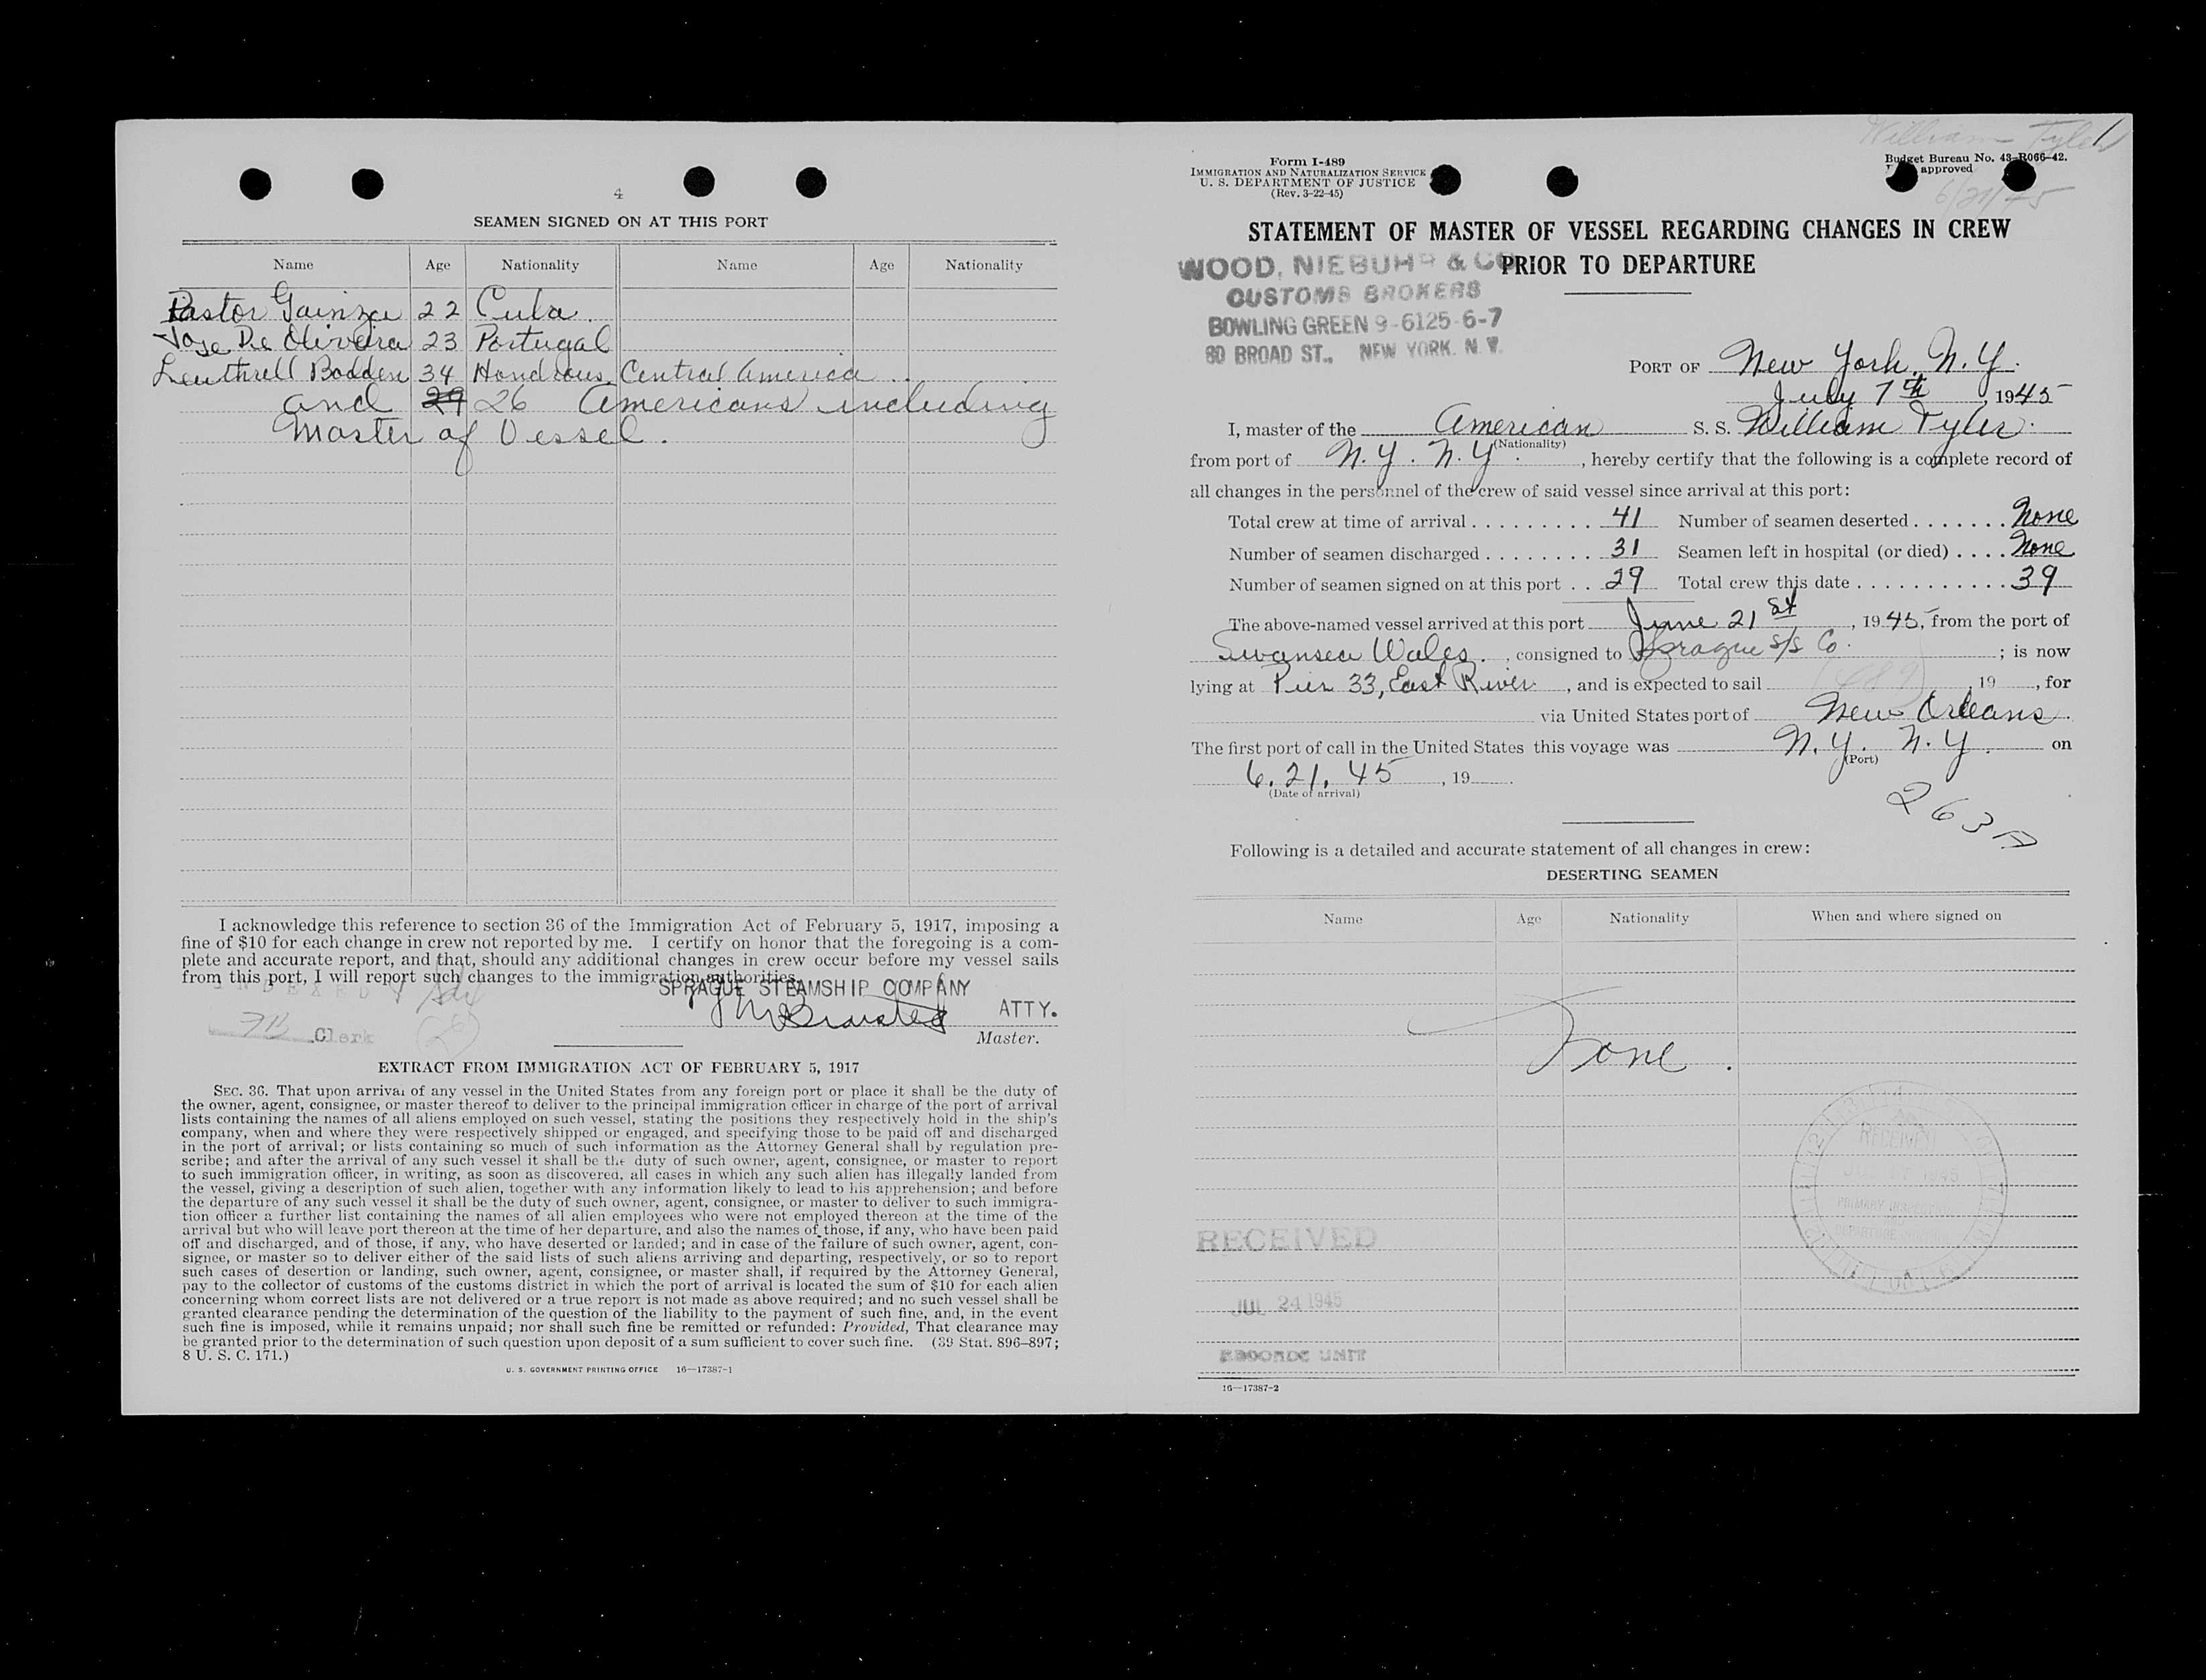 4
SEAMEN SIGNED ON AT THIS PORT
Name Age Nationality Name Age Nationality
Pastor Gainza 22 Cuba.
Jose De Oliveira 23 Portugal
Leuthrell Bodden 34 Honduras, Central America
and 29 26 Americans including
Master of Vessel.
I acknowledge this reference to section 36 of the Immigration Act of February 5, 1917, imposing a
fine of $10 for each change in crew not reported by me. I certify on honor that the foregoing is a com-
plete and accurate report, and that, should any additional changes in crew occur before my vessel sails
from this port, I will report such changes to the immigration authorities.
INDEXED
SPRAGUE STEAMSHIP COMPANY
ATTY.
Clerk
Master.
EXTRACT FROM IMMIGRATION ACT OF FEBRUARY 5, 1917
SEC. 36. That upon arrival of any vessel in the United States from any foreign port or place it shall be the duty of
the owner, agent, consignee, or master thereof to deliver to the principal immigration officer in charge of the port of arrival
lists containing the names of all aliens employed on such vessel, stating the positions they respectively hold in the ship's
company, when and where they were respectively shipped or engaged, and specifying those to be paid off and discharged
in the port of arrival; or lists containing so much of such information as the Attorney General shall by regulation pre-
scribe; and after the arrival of any such vessel it shall be the duty of such owner, agent, consignee, or master to report
to such immigration officer, in writing, as soon as discovered, all cases in which any such alien has illegally landed from
the vessel, giving a description of such alien, together with any information likely to lead to his apprehension; and before
the departure of any such vessel it shall be the duty of such owner, agent, consignee, or master to deliver to such immigra-
tion officer a further list containing the names of all alien employees who were not employed thereon at the time of the
arrival but who will leave port thereon at the time of her departure, and also the names of those, if any, who have been paid
off and discharged, and of those, if any, who have deserted or landed; and in case of the failure of such owner, agent, con-
signee, or master so to deliver either of the said lists of such aliens arriving and departing, respectively, or so to report
such cases of desertion or landing, such owner, agent, consignee, or master shall, if required by the Attorney General,
pay to the collector of customs of the customs district in which the port of arrival is located the sum of $10 for each alien
concerning whom correct lists are not delivered or a true report is not made as above required; and no such vessel shall be
granted clearance pending the determination of the question of the liability to the payment of such fine, and, in the event
such fine is imposed, while it remains unpaid; nor shall such fine be remitted or refunded: Provided, That clearance may
be granted prior to the determination of such question upon deposit of a sum sufficient to cover such fine. (39 Stat. 896–897;
8 U. S. C. 171.)
U. S. GOVERNMENT PRINTING OFFICE 16—17387-1
William Tyler
Form I-489
IMMIGRATION AND NATURALIZATION SERVICE
U. S. DEPARTMENT OF JUSTICE
(Rev. 3-22-45)
Budget Bureau No. 43-R066-42.
approved
6/21/45
STATEMENT OF MASTER OF VESSEL REGARDING CHANGES IN CREW
PRIOR TO DEPARTURE
WOOD, NIEBUHR & CO
CUSTOMS BROKERS
BOWLING GREEN 9-6125-6-7
80 BROAD ST., NEW YORK, N. Y.
PORT OF New York, N.Y.
July 7th, 1945
I, master of the American S. S. William Tyler.
(Nationality)
from port of N.Y. N.Y., hereby certify that the following is a complete record of
all changes in the personnel of the crew of said vessel since arrival at this port:
Total crew at time of arrival . . . . . . . . . . 41 Number of seamen deserted . . . . . . . None
Number of seamen discharged . . . . . . . . 31 Seamen left in hospital (or died) . . . . None
Number of seamen signed on at this port . . 29 Total crew this date . . . . . . . . . . . . 39
The above-named vessel arrived at this port June 21st, 1945, from the port of
Swansea Wales., consigned to Sprague S/S Co. ; is now
lying at Pier 33, East River, and is expected to sail (489), 19 , for
via United States port of New Orleans.
The first port of call in the United States this voyage was N.Y. N.Y. on
(Port)
6.21.45, 19 .
(Date of arrival)
263
Following is a detailed and accurate statement of all changes in crew:
DESERTING SEAMEN
Name Age Nationality When and where signed on
None.
RECEIVED
1945
PRIMARY
DEPARTURE
RECEIVED
JUL 24 1945
RECORDS UNIT
16—17387-2